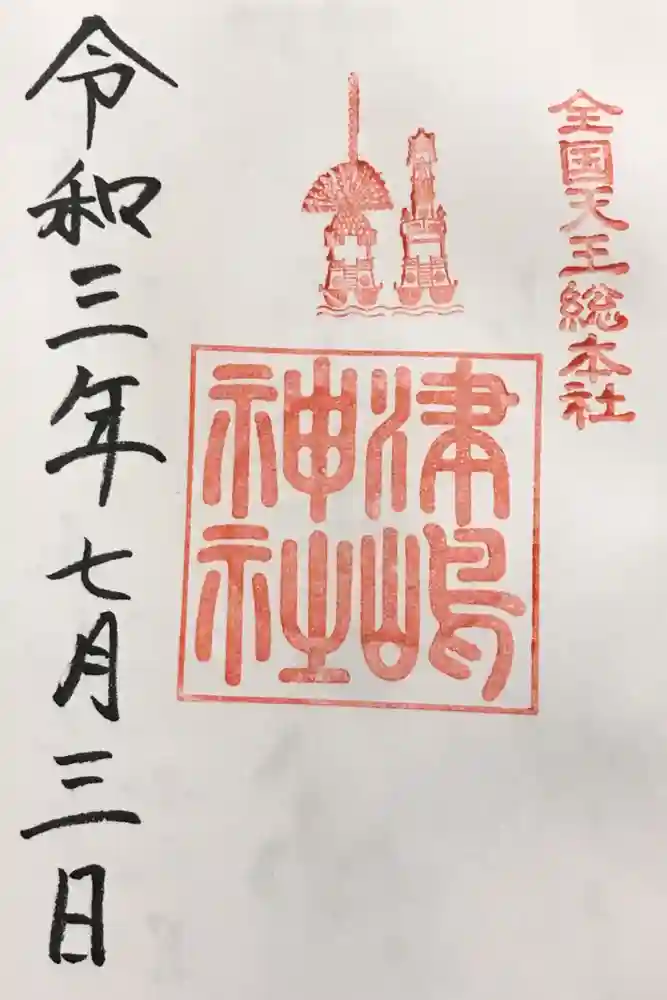 全国天王総本社
津嶋神社
令和三年七月三日